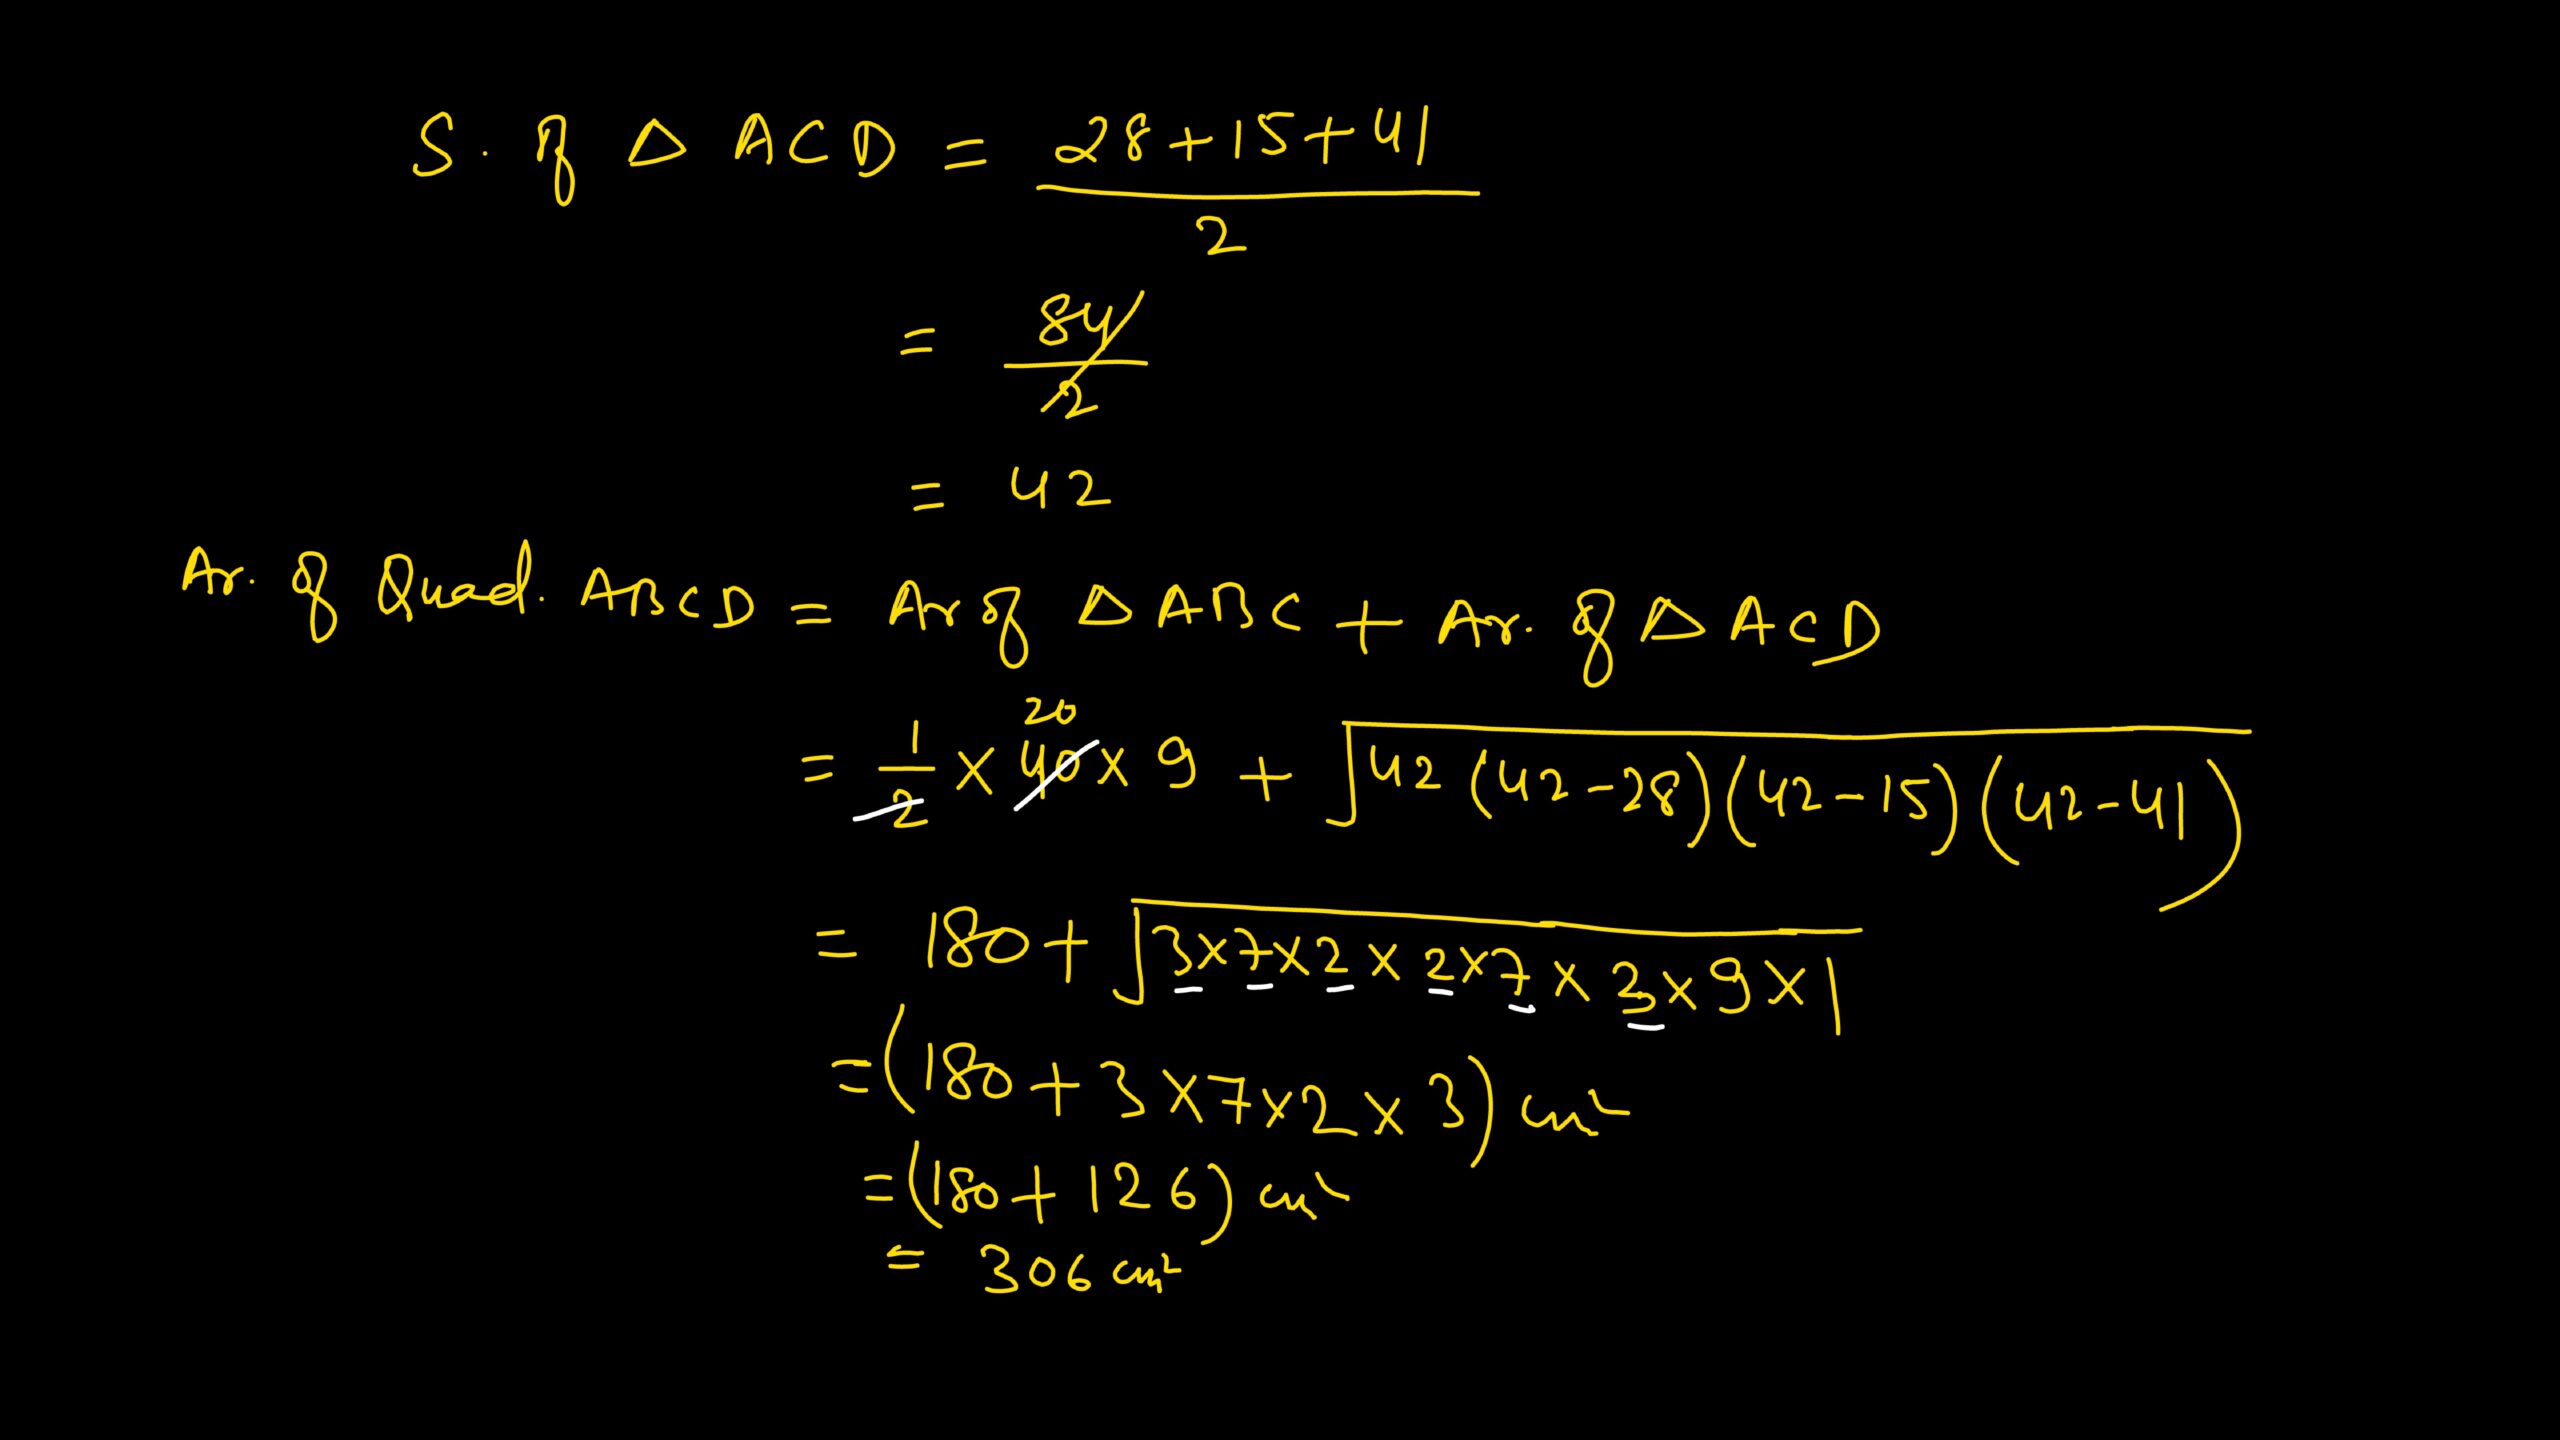 S. of △ ACD = 28+15+41
2
= 84
2
= 42
Ar. of Quad. ABCD = Ar of △ ABC + Ar. of △ ACD
20
= 1/2 × 40 × 9 + √42 (42-28)(42-15)(42-41)
= 180 + √3×7×2 × 2×7 × 3×9×1
= (180 + 3×7×2×3) cm²
= (180 + 126) cm²
= 306 cm²